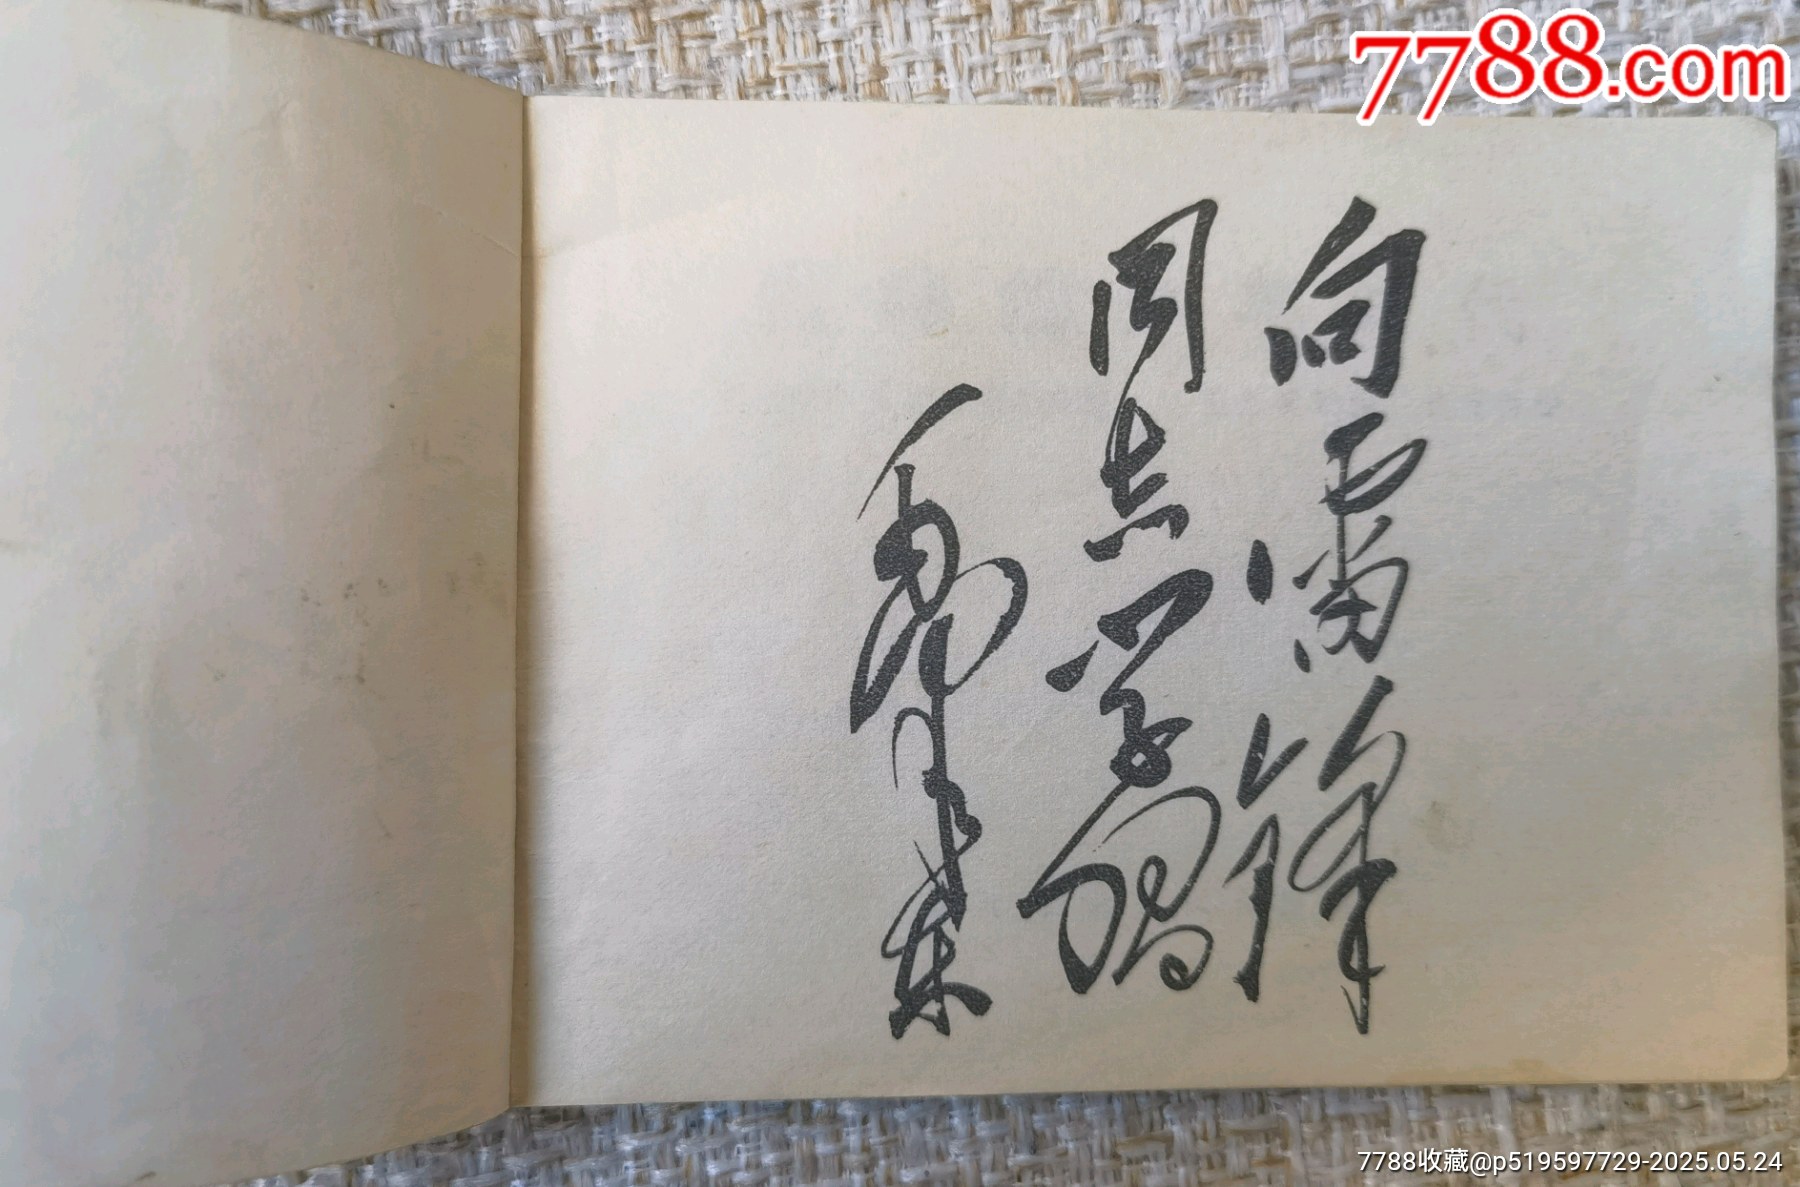 7788.com
向雷锋
同志学习
毛泽东
7788收藏@p519597729-2025.05.24